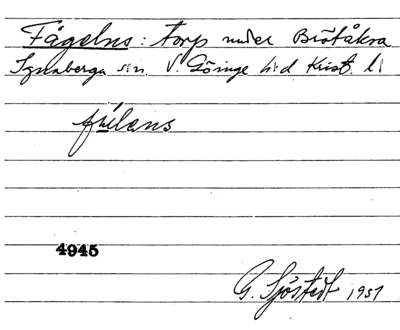 Fågelns: torp under Brötåkra
Ignaberga sn. V. Göinge hd Krist. l
fúlens
4945
G. Sjöstedt 1951